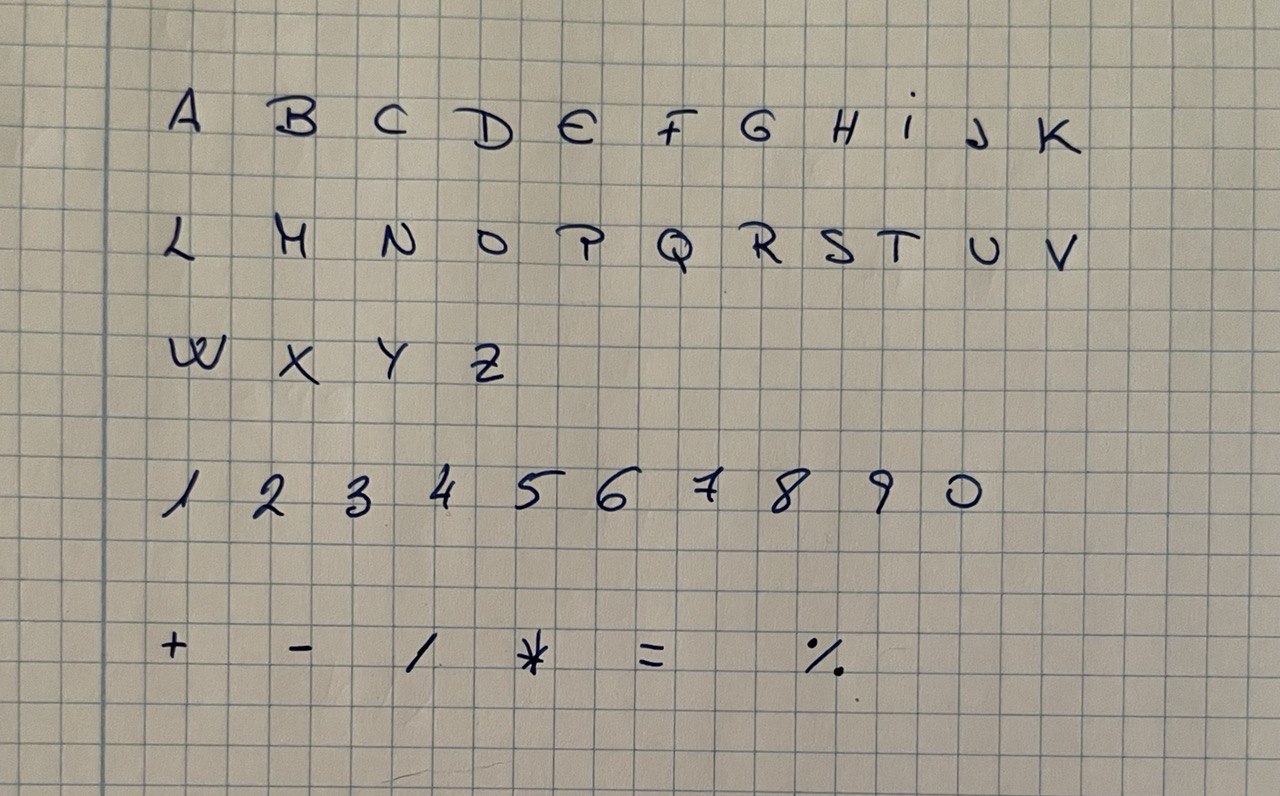 A B C D E F G H i J K
L M N O P Q R S T U V
W X Y Z
1 2 3 4 5 6 7 8 9 0
+ - / * = %